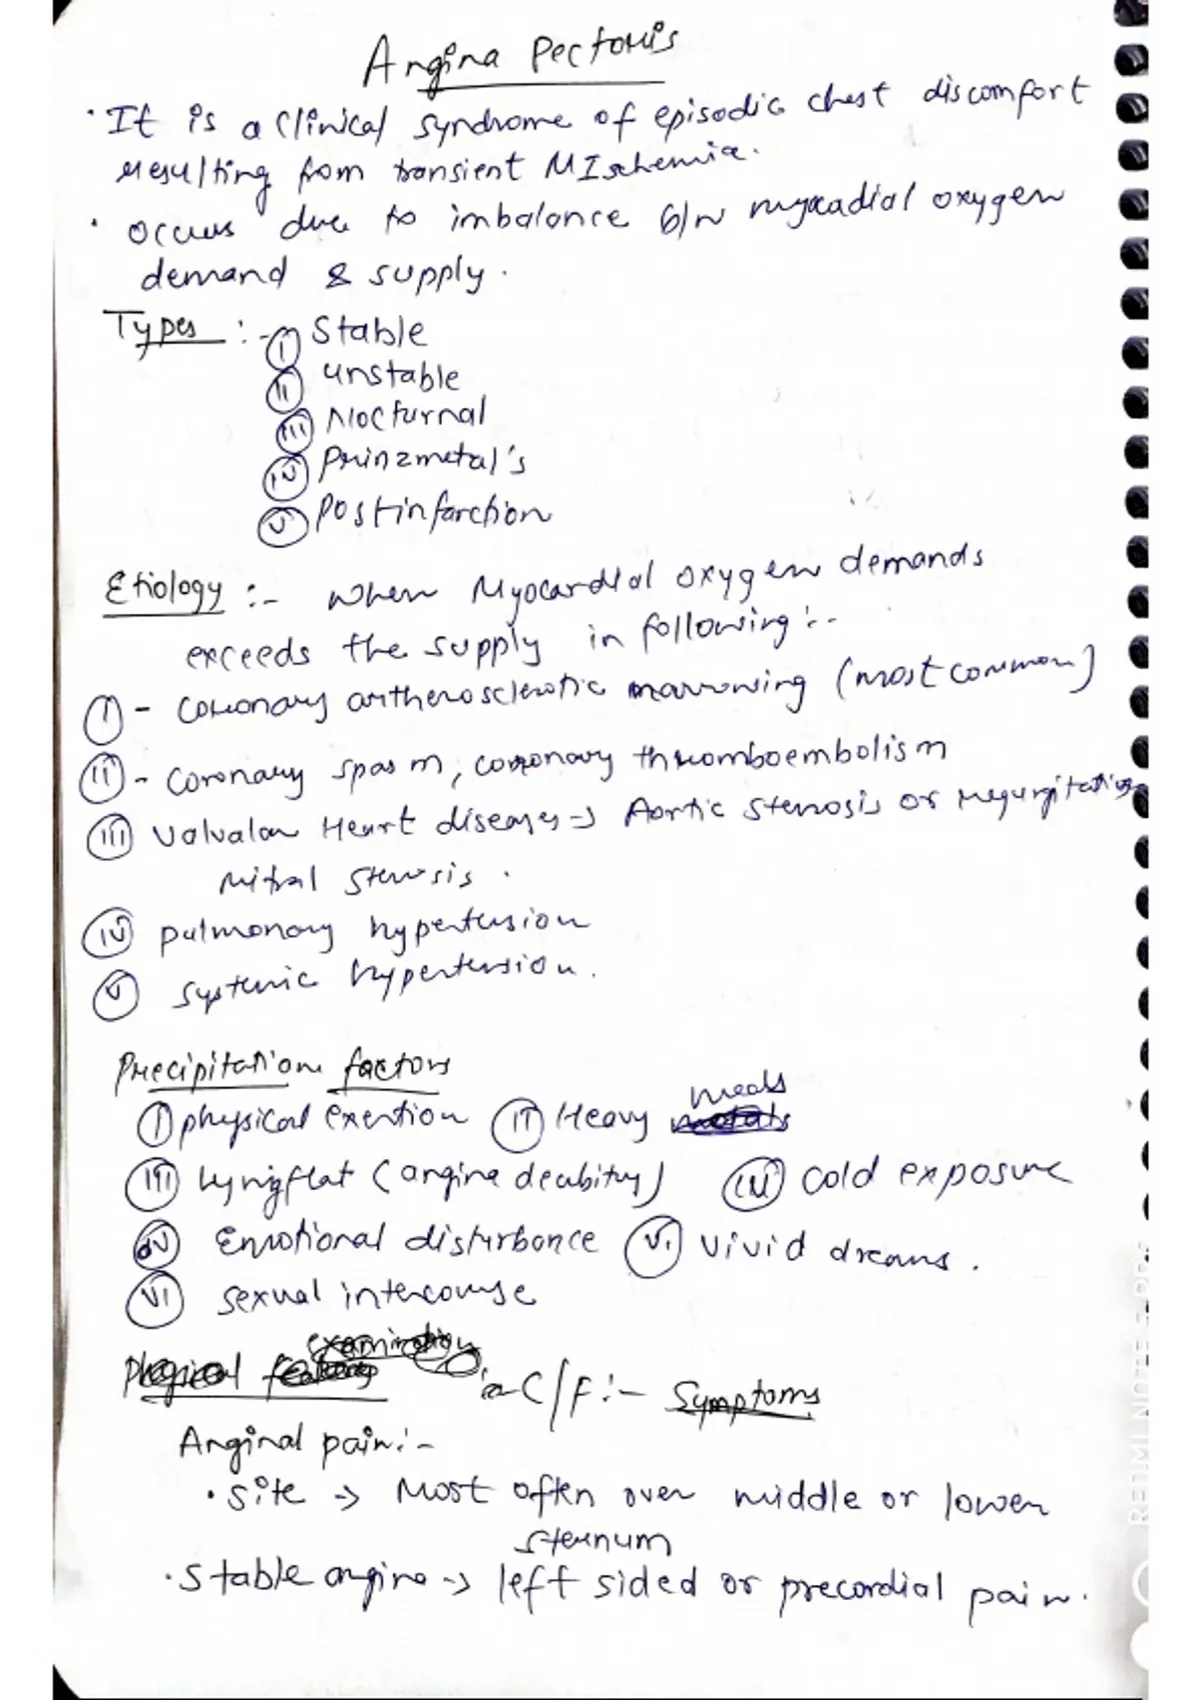 Angina Pectoris
· It is a clinical syndrome of episodic chest discomfort
resulting from transient MIschemia.
· occurs due to imbalance b/w myocadial oxygen
demand & supply.
Types :- (I) Stable
(II) unstable
(III) Nocturnal
(IV) Prinzmetal's
(V) Postinfarction
Etiology :- When Myocardial oxygen demands
exceeds the supply in following :-
(I) - Coronary artherosclerotic narrowing (most common)
(II) - Coronary spasm, coronary thromboembolism
(III) Valvalar Heart diseases → Aortic stenosis or regurgitation
Mitral stenosis.
(IV) pulmonary hypertension
(V) systemic hypertension.
Precipitation factors
(I) physical exertion (II) Heavy meals
(III) Lying flat (angina decubitus) (IV) Cold exposure
(V) Emotional disturbance (VI) Vivid dreams.
(VI) sexual intercourse
examination
C/F :- Symptoms
Anginal pain :-
· Site → Most often over middle or lower
sternum
· Stable angina → left sided or precordial pain.